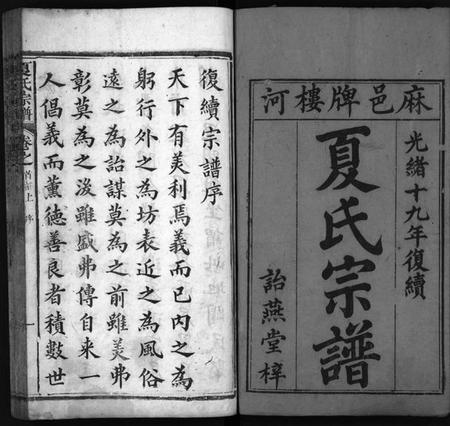 麻邑牌樓河
光緒十九年復續
夏氏宗譜
詒燕堂梓
復續宗譜序
天下有美利焉義而已內之為
躬行外之為坊表近之為風俗
遠之為詒謀莫為之前雖美弗
彰莫為之後雖盛弗傳自來一
人倡義而薰德善良者積數世
夏氏宗譜
卷之首
上
序
一